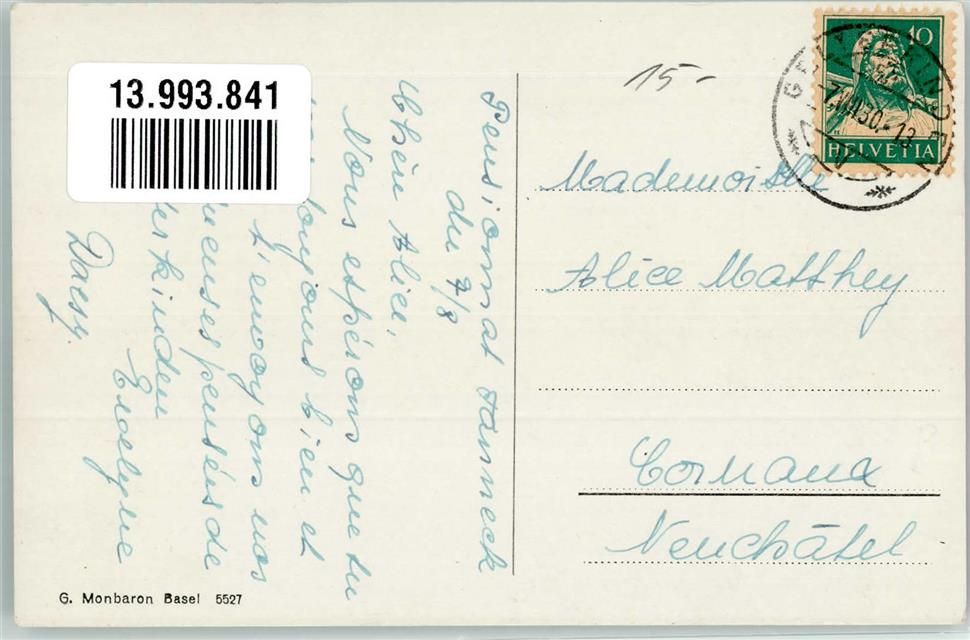 13.993.841
15.-
10
HELVETIA
GELTERKINDEN
7.VIII.30.-13
Pensionnat Tanneck
du 7/8
Chère Alice,
Nous espérons que tu
toujours bien et
t'envoyons nos
pensées de
kinden
Evelyne
Daisy.
Mademoiselle
Alice Matthey
Cornaux
Neuchâtel
G. Monbaron Basel 5527